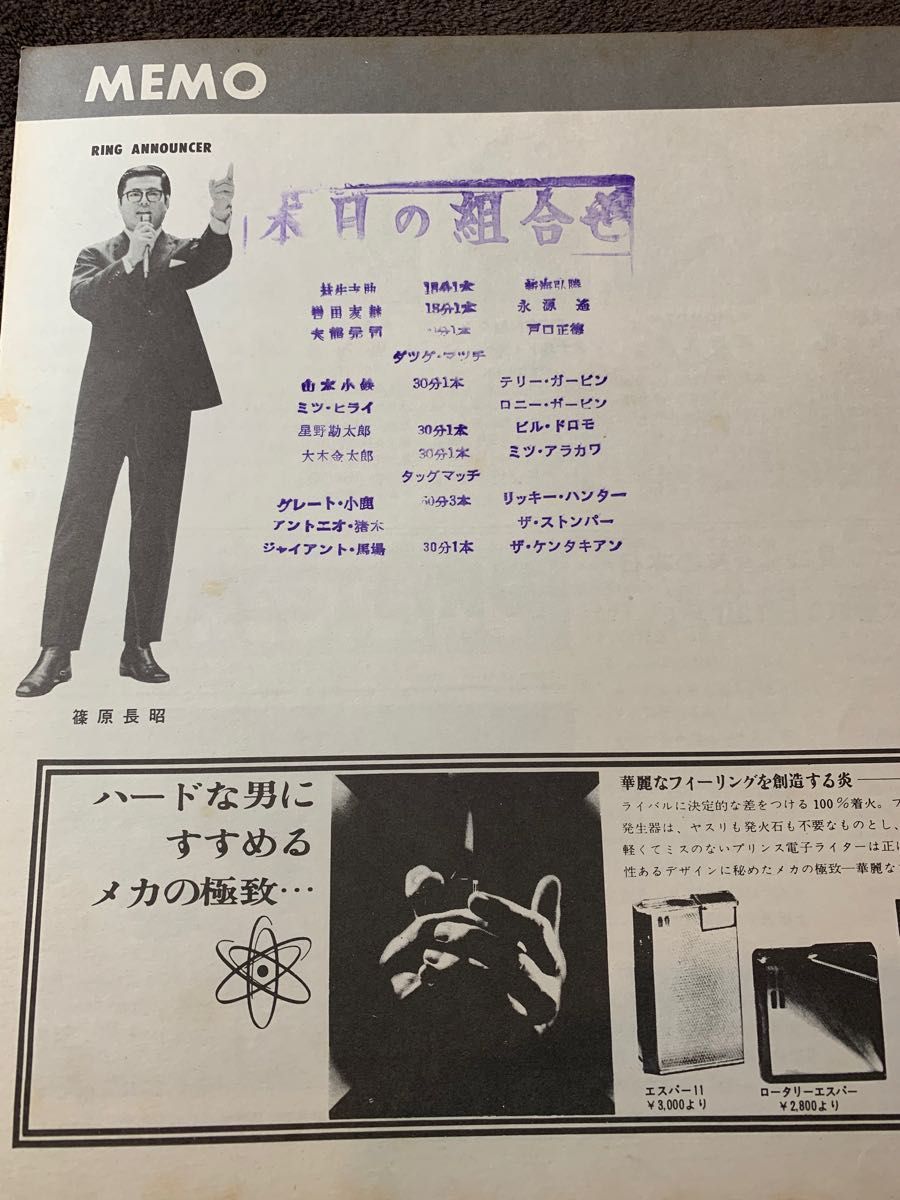 MEMO
RING ANNOUNCER
本日の組合せ
18分1本
岩田 18分1本 永源遙
戸口正徳
タッグ・マッチ
山本小鉄 30分1本 テリー・ガービン
ミツ・ヒライ ロニー・ガービン
星野勘太郎 30分1本 ビル・ドロモ
大木金太郎 30分1本 ミツ・アラカワ
タッグマッチ
グレート・小鹿 60分3本 リッキー・ハンター
アントニオ・猪木 ザ・ストンパー
ジャイアント・馬場 30分1本 ザ・ケンタキアン
篠原長昭
ハードな男に
すすめる
メカの極致…
華麗なフィーリングを創造する炎—
ライバルに決定的な差をつける100%着火。
発生器は、ヤスリも発火石も不要なものとし、
軽くてミスのないプリンス電子ライターは正に
性あるデザインに秘めたメカの極致—華麗な
エスパー11
¥3,000より
ロータリーエスパー
¥2,800より